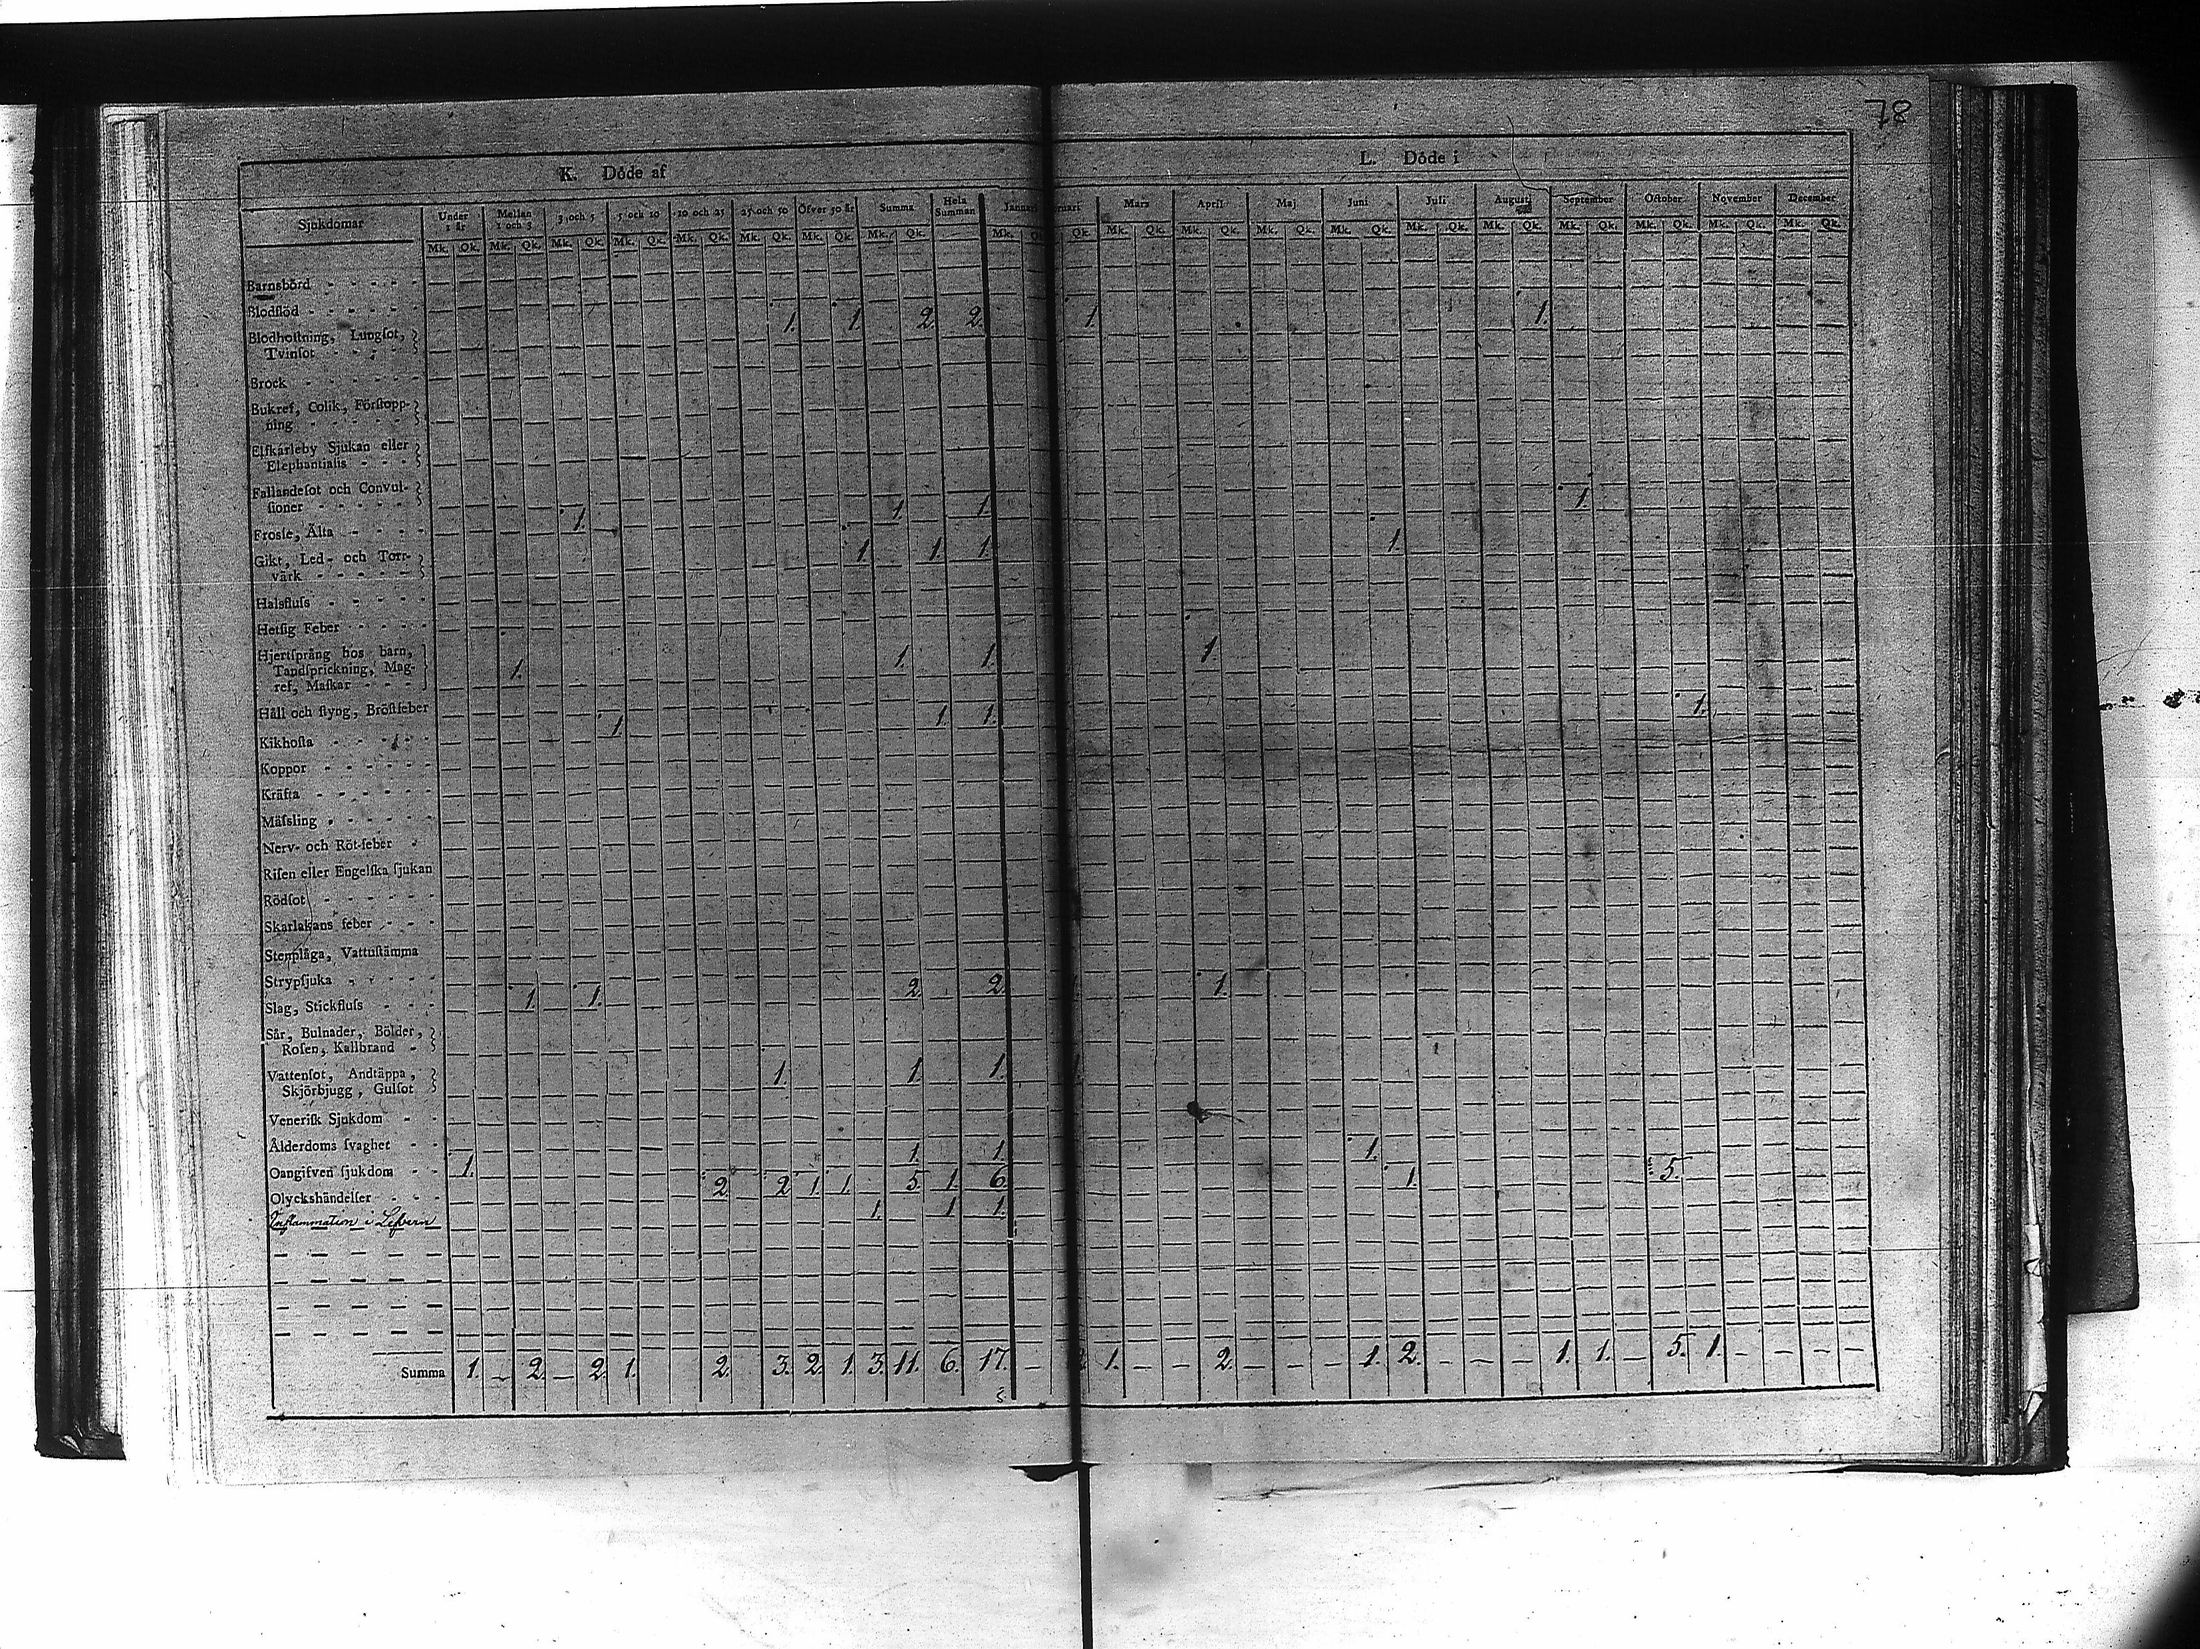 78
K. Döde af
L. Döde i
Sjukdomar Under 1 år Mellan 1 och 3 3 och 5 5 och 10 10 och 25 25 och 50 Öfver 50 år Summa Hela Summan Januari Mars April Maj Juni Juli Augusti September October November December
Mk. Qk. Mk. Qk. Mk. Qk. Mk. Qk. Mk. Qk. Mk. Qk. Mk. Qk. Mk. Qk. Mk. Qk. Mk. Qk. Mk. Qk. Mk. Qk. Mk. Qk. Mk. Qk. Mk. Qk. Mk. Qk. Mk. Qk. Mk. Qk. Mk. Qk.
Barnsbörd
Blodflöd 1. 1. 2. 2. 1. 1.
Blodhoſtning, Lungſot,
Tvinſot
Brock
Bukref, Colik, Förſtopp-
ning
Elfkarleby Sjukan eller
Elephantiaſis
Fallandeſot och Convul-
ſioner 1. 1. 1. 1.
Frosſe, Älta
Gikt, Led- och Torr- 1. 1. 1. 1.
värk
Halsfluſs
Hetſig Feber
Hjertſprång hos barn,
Tandſprickning, Mag- 1. 1. 1. 1.
ref, Maſkar
Håll och ſtyng, Bröſtfeber 1. 1. 1. 1.
Kikhoſta
Koppor
Kräfta
Mäſsling
Nerv- och Röt-feber
Riſen eller Engelſka ſjukan
Rödſot
Skarlakans feber
Stenplåga, Vattuſtämma
Strypſjuka
Slag, Stickfluſs 1. 1. 2. 2. 1.
Sår, Bulnader, Bölder,
Roſen, Kallbrand
Vattenſot, Andtäppa, 1. 1. 1.
Skjörbjugg, Gulſot
Veneriſk Sjukdom
Ålderdoms ſvaghet
Oangifven ſjukdom 1. 1. 1. 1.
Olyckshändelſer 2. 2. 1. 1. 5. 1. 6. 1. 5.
Inflammation i Lefvern 1. 1. 1.
Summa 1. — 2. — 2. 1. 2. 3. 2. 1. 3. 11. 6. 17. — 1. — — 2. — — — 1. 2. — — — 1. 1. — 5. 1. — — —